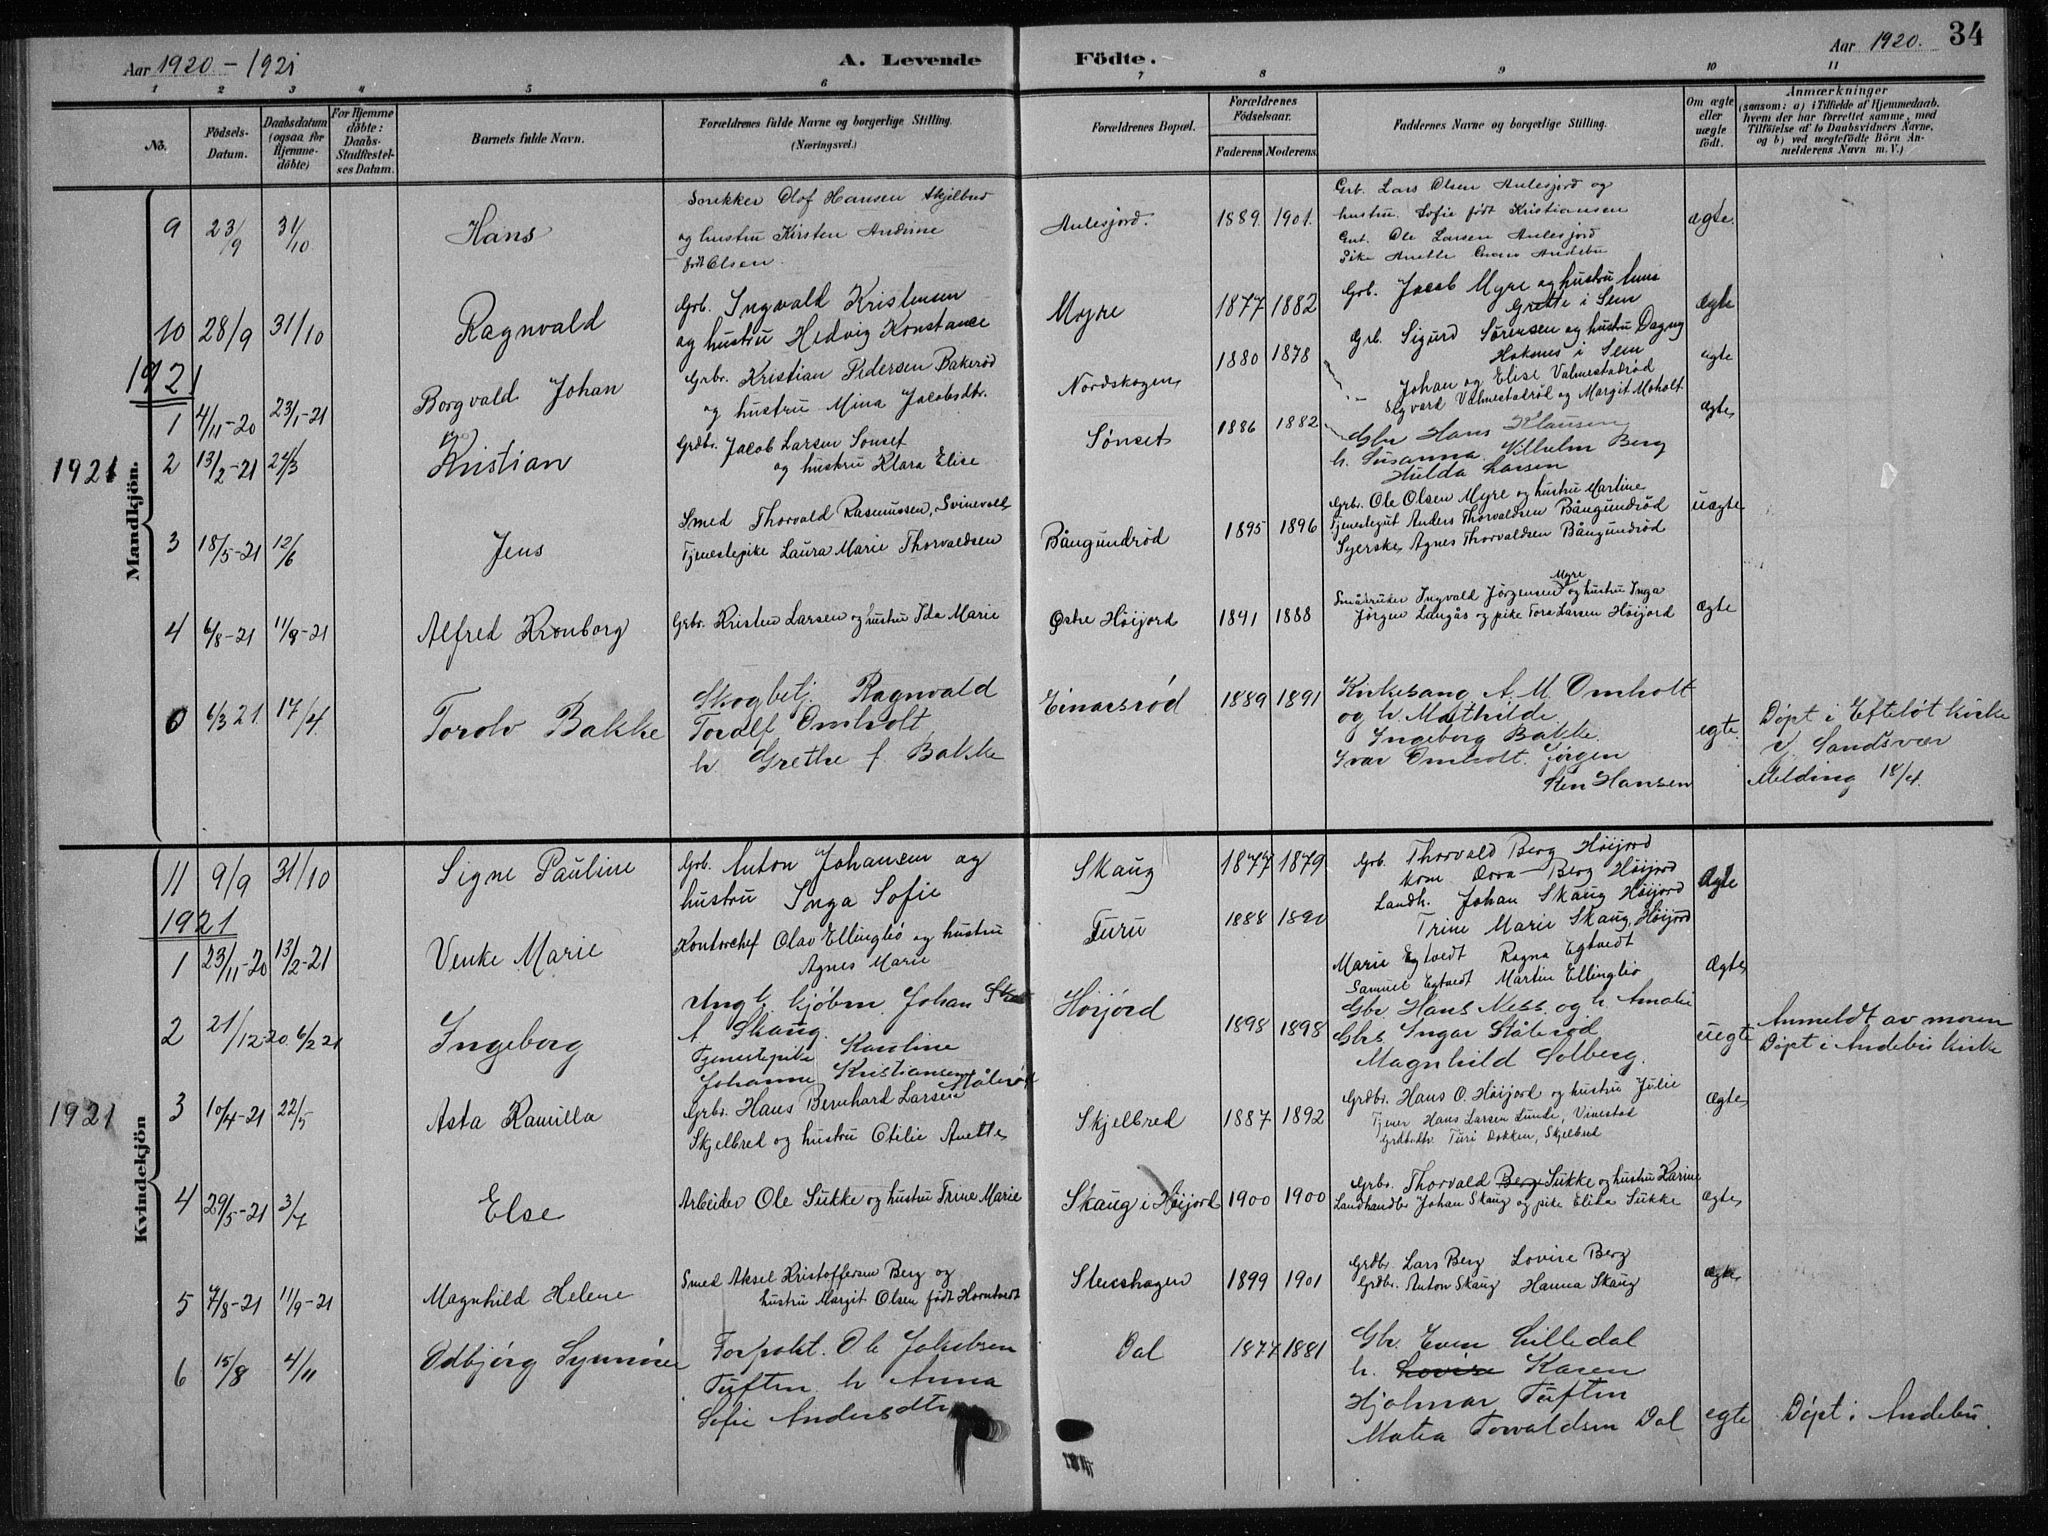 Aar 1920 - 1921
A. Levende
Födte.
Aar 1920.
34
1 2 3 4 5 6 7 8 9 10 11
No.
Födsels-Datum.
Daabsdatum (ogsaa for Hjemmedöbte)
For Hjemmedöbte: Daabs-Stadfæstelses Datum.
Barnets fulde Navn.
Forældrenes fulde Navne og borgerlige Stilling.
(Næringsvei.)
Forældrenes Bopæl.
Forældrenes Födselsaar.
Faderens. Moderens.
Faddernes Navne og borgerlige Stilling.
Om ægte eller uægte födt.
Anmærkninger
(saasom: a) i Tilfælde af Hjemmedaab, hvem der har forrettet samme, med Tilföielse af to Daabsvidners Navne, og b) ved uegtefödte Börn Anmelderens Navn m. V.)
Mandkjön.
9 23/9 31/10 Hans
Snekker Olof Hansen Skjelbred
og hustru Kirsten Andrine
født Olsen
Aulesjord. 1889. 1901.
Grb. Lars Olsen Aulesjord og
hustru Sofie født Kristiansen
Ole Larsen Aulesjord
Pike Anette Andebu
ægte.
10 28/9 31/10 Ragnvald
Grb. Ingvald Kristensen
og hustru Hedvig Konstance
Myre 1877 1882
Grb. Jacob Myre og hustru
Grette i Sem
Grb. Sigurd Sørensen og hustru Dagny
Haknes i Sem
ægte
1921
1 4/11-20 23/1-21 Borgvald Johan
Grbr. Kristian Pedersen Bakerød
og hustru Mina Jacobsdtr.
Nordskogen 1880 1878
Johan og Elise Valmestadrød
Sigvard Valmestadrød og Margit Moholt
ægte
1921
2 13/2-21 24/3 Kristian
Grdbr. Jacob Larsen Sønset
og hustru Klara Elise
Sønset 1886 1882
Gbr Hans Klausen
h. Susanna. Vilhelm Berg
Hulda Larsen
ægte
3 18/5-21 12/6 Jens
Smed Thorvald Rasmussen, Svinevoll
Tjenestepike Laura Marie Thorvaldsen
Bångundrød 1895 1896
Grb. Ole Olsen Myre og hustru Martine
Tjenestegut Anders Thorvaldsen Bångundrød
Syerske Agnes Thorvaldsen Bångundrød
uægte
4 6/8-21 11/9-21 Alfred Kronborg
Grbr. Kristen Larsen og hustru Ida Marie
Østre Høijord 1891 1888
Småbruker Ingvald Jørgensen Myre og hustru Inga
Jørgen Langås og pike Tora Larsen Høijord
ægte
0 6/3 21 17/4 Torolv Bakke
Skogbetj. Ragnvald
Toralf Omholt
h. Grethe f. Bakke
Einarsrød 1889 1891
Kirkesang. A. M. Omholt
og h. Mathilde
Ingeborg Bakke.
Ivar Omholt. Jørgen
Sten Hansen
egte.
Døpt i Efteløt kirke
Sandsvær
Melding 18/4.
Kvindekjön
11 9/9 31/10 Signe Pauline
Grb. Anton Johansen og
hustru Inga Sofie
Skaug 1877 1879
Grb. Thorvald Berg Høijord
kone Dora Berg Høijord
Landh. Johan Skaug Høijord
Trine Marie Skaug, Høijord
ægte
1921
1 23/11-20 13/2-21 Venke Marie
Kontorchef Olav Ellingbø og hustru
Agnes Marie
Furu 1888 1890
Marie Egtvedt Ragna Egtvedt
Samuel Egtvedt Martin Ellingbø
ægte
2 21/12-20 6/2 21 Ingeborg
Ungk. kjøbm. Johan
A Skaug.
Tjenestepike Karoline
Johanne Kristiansen Stålerød
Høijord 1898 1898
Gbr Hans Ness og h. Amalie
Gbrs Ingar Stålerød
Magnhild Solberg.
uegte
Anmeldt av moren
Døpt i Andebu kirke
1921
3 10/4-21 22/5 Asta Kamilla
Grbr. Hans Bernhard Larsen
Skjelbred og hustru Otilie Anette
Skjelbred 1887 1892
Grdbr. Hans O. Høijord og hustru Julie
Tjener Hans Larsen Lunde, Vinestad
Grdbdtr. Turi Dokken, Skjelbred
ægte
4 29/5-21 3/7 Else
Arbeider Ole Sukke og hustru Trine Marie
Skaug i Høijord 1900 1900
Grbr. Thorvald Berg Sukke og hustru Karine
Landhandler Johan Skaug og pike Elida Sukke
ægte
5 7/8-21 11/9-21 Magnhild Helene
Smed Aksel Kristoffersen Berg og
hustru Margit Olsen født Horntvedt
Stenshagen 1899 1901
Grdbr. Lars Berg Lovise Berg
Grdbr. Anton Skaug Hanna Skaug
ægte
6 15/8 4/11 Odbjørg Synnøve
Forpakt. Ole Jakobsen
Tuften h Anna
Sofie Andersdtr
Dal 1874 1881
Gbr. Even Lilledal
h. Lovise Karen
Hjalmar Tuften
Matea Torvaldsen Dal
egte
Døpt i Andebu.